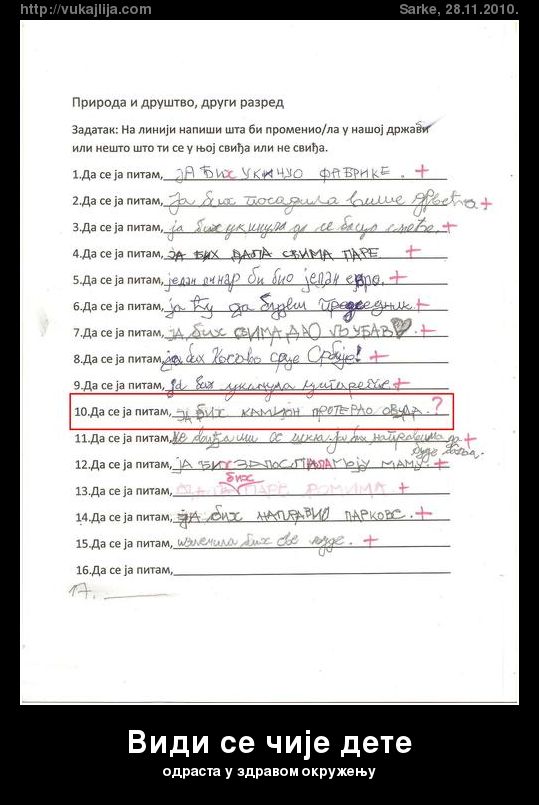 http://vukajlija.com
Sarke, 28.11.2010.
Природа и друштво, други разред
Задатак: На линији напиши шта би променио/ла у нашој држави
или нешто што ти се у њој свиђа или не свиђа.
1.Да се ја питам, ЈА БИХ УКИНУО ФАБРИКЕ. +
2.Да се ја питам, Ја бих посадила више дрвећа. +
3.Да се ја питам, ја бих укинула да се баца смеће. +
4.Да се ја питам, ЈА БИХ ДАЛА СВИМА ПАРЕ +
5.Да се ја питам, један динар би био један евро. +
6.Да се ја питам, ја ћу да будем председник +
7.Да се ја питам, ЈА БИХ СВИМА ДАО ЉУБАВ +
8.Да се ја питам, ја бих Косово срце Србије! +
9.Да се ја питам, ја бих укинула цигарете +
10.Да се ја питам, ЈА БИХ КАМИОН ПРОТЕРАО ОВУДА. ?
11.Да се ја питам, +
12.Да се ја питам, ЈА БИХ ЗАПОСЛАЛА МОЈУ МАМУ. +
бих
13.Да се ја питам, ПАРЕ РОМИМА. +
14.Да се ја питам, ЈА БИХ НАПРАВИО ПАРКОВЕ. +
15.Да се ја питам, изменила бих све људе. +
16.Да се ја питам,
17.
Види се чије дете
одраста у здравом окружењу